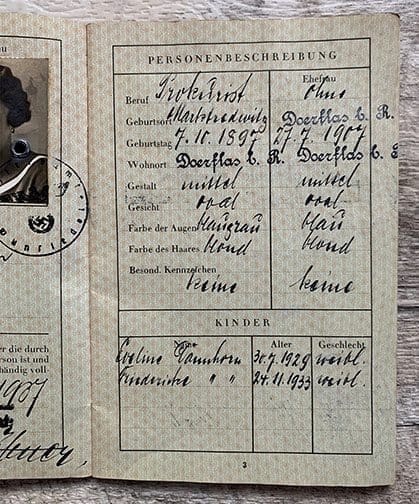 au
PERSONENBESCHREIBUNG
Ehefrau
Beruf Prokurist ohne
Geburtsort Marktredwitz Doerflas b. R.
Geburtstag 7.10.1897 27.7.1907
Wohnort Doerflas b. R. Doerflas b. R.
Gestalt mittel mittel
Gesicht oval oval
Farbe der Augen blaugrau blau
Farbe des Haares blond blond
Besond. Kennzeichen
keine keine
KINDER
Name Alter Geschlecht
30.7.1929 weibl.
" " 24.11.1933 weibl.
er die durch
rson ist und
händig voll-
3